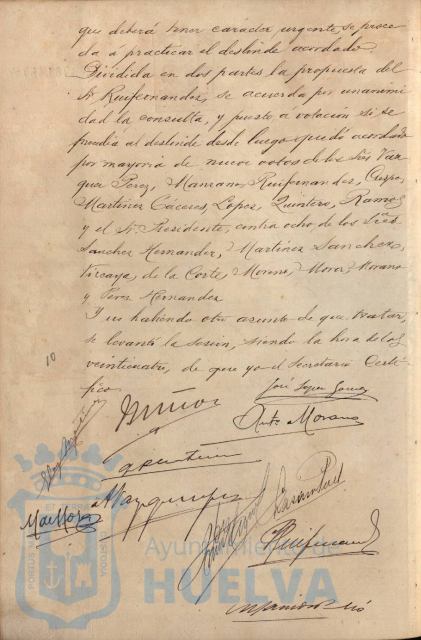 que deberá tener carácter urgente, se proce
da á practicar el deslinde acordado.
Dividida en dos partes la propuesta del
Sr. Ruifernandez, se acuerda por unanimi
dad la consulta, y puesto a votación si se
procedia al deslinde desde luego, quedó acordado
por mayoria de nueve votos de los Sres.
Perez, Manzano, Ruifernandez,
Martinez Cáceres, Lopez, Quintero, Ramos
y el Sr. Presidente, contra ocho, de los Sres.
Sanchez Hernandez, Martinez Sanchez,
Vizcaya, de la Corte, Moreno, Mora, Morano
y Perez Hernandez
Y no habiendo otro asunto de que tratar,
se levantó la sesion, siendo la hora de las
veinticuatro, de que yo el Secretario Certi-
fico.
10
José Lopez Gomez
Muñoz
Anto. Morano
Ruifernand
Ayuntamiento de
HUELVA
PORTUS